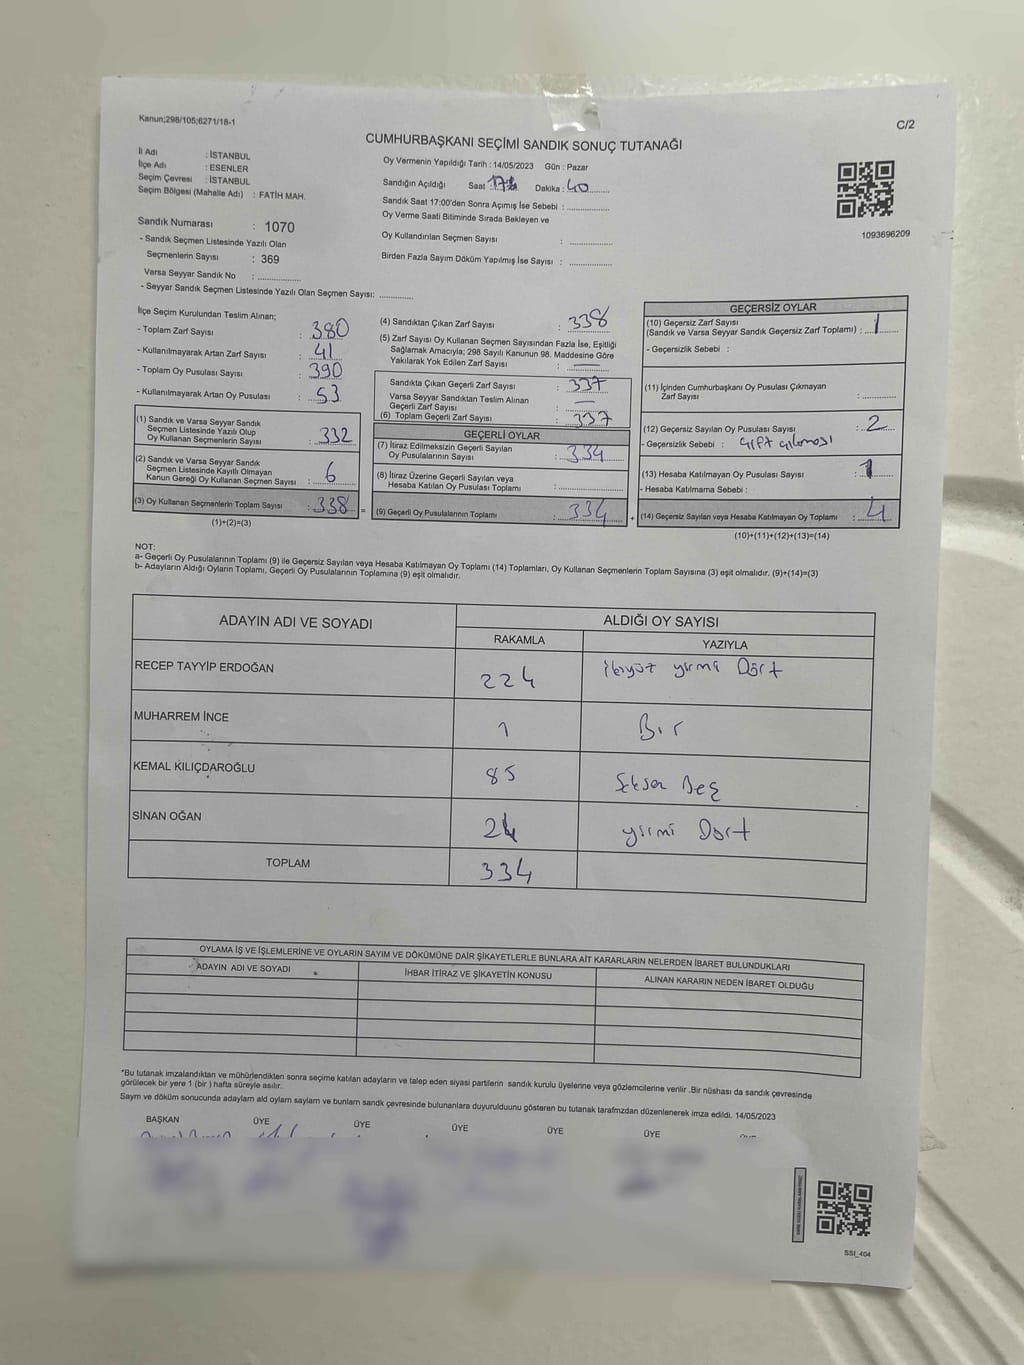 Kanun;298/105;6271/18-1
C/2
CUMHURBAŞKANI SEÇİMİ SANDIK SONUÇ TUTANAĞI
İl Adı : İSTANBUL
İlçe Adı : ESENLER
Seçim Çevresi : İSTANBUL
Seçim Bölgesi (Mahalle Adı) : FATİH MAH.
Sandık Numarası : 1070
- Sandık Seçmen Listesinde Yazılı Olan
Seçmenlerin Sayısı : 369
Varsa Seyyar Sandık No : ..............
- Seyyar Sandık Seçmen Listesinde Yazılı Olan Seçmen Sayısı: ............
Oy Vermenin Yapıldığı Tarih : 14/05/2023 Gün : Pazar
Sandığın Açıldığı Saat : 17 Dakika : 40
Sandık Saat 17:00'den Sonra Açımış İse Sebebi : ..............
Oy Verme Saati Bitiminde Sırada Bekleyen ve
Oy Kullandırılan Seçmen Sayısı : ..............
Birden Fazla Sayım Döküm Yapılmış İse Sayısı : ..............
1093696209
İlçe Seçim Kurulundan Teslim Alınan;
- Toplam Zarf Sayısı : 380
- Kullanılmayarak Artan Zarf Sayısı : 41
- Toplam Oy Pusulası Sayısı : 390
- Kullanılmayarak Artan Oy Pusulası : 53
(1) Sandık ve Varsa Seyyar Sandık
Seçmen Listesinde Yazılı Olup
Oy Kullanan Seçmenlerin Sayısı : 332
(2) Sandık ve Varsa Seyyar Sandık
Seçmen Listesinde Kayıtlı Olmayan
Kanun Gereği Oy Kullanan Seçmen Sayısı : 6
(3) Oy Kullanan Seçmenlerin Toplam Sayısı : 338 =
(1)+(2)=(3)
(4) Sandıktan Çıkan Zarf Sayısı : 338
(5) Zarf Sayısı Oy Kullanan Seçmen Sayısından Fazla İse, Eşitliği
Sağlamak Amacıyla; 298 Sayılı Kanunun 98. Maddesine Göre
Yakılarak Yok Edilen Zarf Sayısı : —
Sandıkta Çıkan Geçerli Zarf Sayısı : 337
Varsa Seyyar Sandıktan Teslim Alınan
Geçerli Zarf Sayısı : —
(6) Toplam Geçerli Zarf Sayısı : 337
GEÇERLİ OYLAR
(7) İtiraz Edilmeksizin Geçerli Sayılan
Oy Pusulalarının Sayısı : 334
(8) İtiraz Üzerine Geçerli Sayılan veya
Hesaba Katılan Oy Pusulası Toplamı : ..............
(9) Geçerli Oy Pusulalarının Toplamı : 334 +
GEÇERSİZ OYLAR
(10) Geçersiz Zarf Sayısı
(Sandık ve Varsa Seyyar Sandık Geçersiz Zarf Toplamı) : 1
- Geçersizlik Sebebi :
(11) İçinden Cumhurbaşkanı Oy Pusulası Çıkmayan
Zarf Sayısı : ..............
(12) Geçersiz Sayılan Oy Pusulası Sayısı : 2
- Geçersizlik Sebebi : çift çıkması
(13) Hesaba Katılmayan Oy Pusulası Sayısı : 1
- Hesaba Katılmama Sebebi :
(14) Geçersiz Sayılan veya Hesaba Katılmayan Oy Toplamı : 4
(10)+(11)+(12)+(13)=(14)
NOT:
a- Geçerli Oy Pusulalarının Toplamı (9) ile Geçersiz Sayılan veya Hesaba Katılmayan Oy Toplamı (14) Toplamları, Oy Kullanan Seçmenlerin Toplam Sayısına (3) eşit olmalıdır. (9)+(14)=(3)
b- Adayların Aldığı Oyların Toplamı, Geçerli Oy Pusulalarının Toplamına (9) eşit olmalıdır.
ADAYIN ADI VE SOYADI
ALDIĞI OY SAYISI
RAKAMLA YAZIYLA
RECEP TAYYİP ERDOĞAN 224 ikiyüz yirmi Dört
MUHARREM İNCE 1 Bir
KEMAL KILIÇDAROĞLU 85 Seksen Beş
SİNAN OĞAN 24 yirmi Dört
TOPLAM 334
OYLAMA İŞ VE İŞLEMLERİNE VE OYLARIN SAYIM VE DÖKÜMÜNE DAİR ŞİKAYETLERLE BUNLARA AİT KARARLARIN NELERDEN İBARET BULUNDUKLARI
ADAYIN ADI VE SOYADI İHBAR İTİRAZ VE ŞİKAYETİN KONUSU ALINAN KARARIN NEDEN İBARET OLDUĞU
*Bu tutanak imzalandıktan ve mühürlendikten sonra seçime katılan adayların ve talep eden siyasi partilerin sandık kurulu üyelerine veya gözlemcilerine verilir .Bir nüshası da sandık çevresinde
görülecek bir yere 1 (bir ) hafta süreyle asılır.
Saym ve döküm sonucunda adaylarn ald oylarn saylarn ve bunlarn sandk çevresinde bulunanlara duyurulduunu gösteren bu tutanak tarafmzdan düzenlenerek imza edildi. 14/05/2023
BAŞKAN ÜYE ÜYE ÜYE ÜYE ÜYE
SSI_404